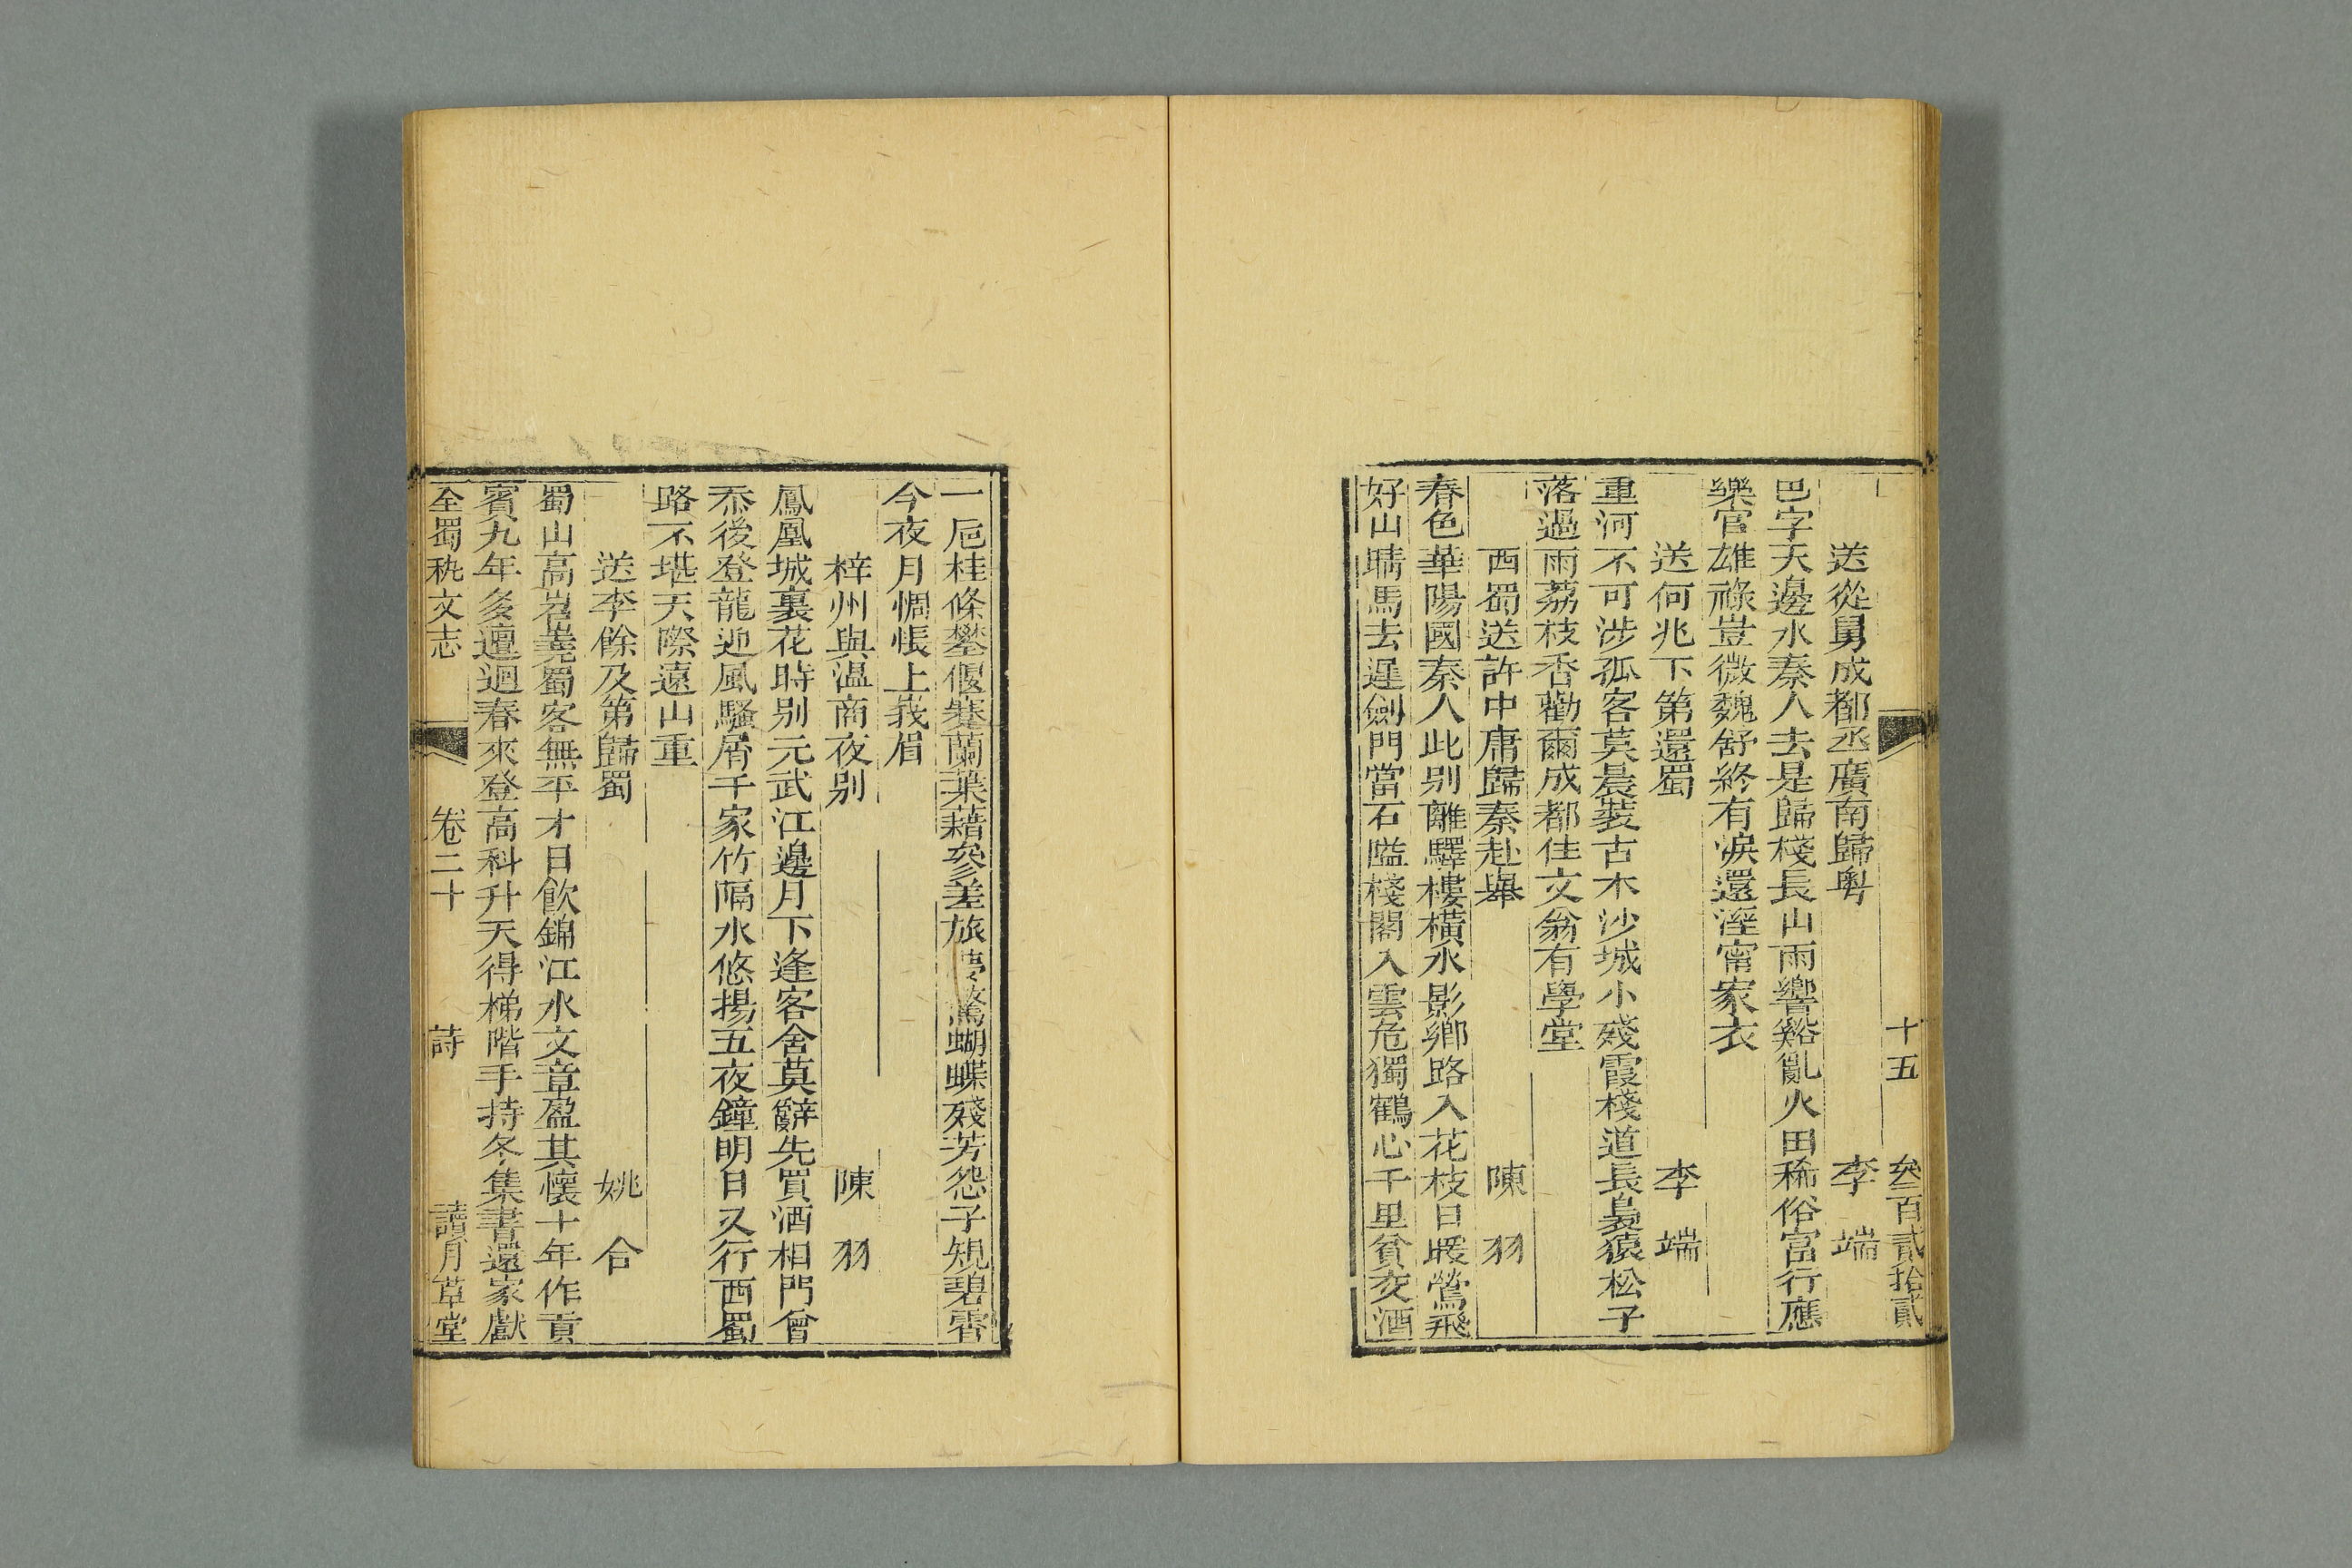 十五　叄百貳拾貳
送從舅成都丞廣南歸粵　李端
巴字天邊水秦人去是歸棧長山雨響谿亂火田稀俗富行應
樂官雄祿豈微魏舒終有淚還溼甯家衣
送何兆下第還蜀　李端
重河不可涉孤客莫晨裝古木沙城小殘霞棧道長裊猿松子
落過雨荔枝香勸爾成都住文翁有學堂
西蜀送許中庸歸秦赴舉　陳羽
春色華陽國秦人此别離驛樓橫水影鄉路入花枝日暖鶯飛
好山晴馬去遲劍門當石隘棧閣入雲危獨鶴心千里貧交酒
一巵桂條攀偃蹇蘭葉藉參差旅夢驚蝴蝶殘芳怨子規碧霄
今夜月惆悵上峩眉
梓州與温商夜别　陳羽
鳳凰城裏花時别元武江邊月下逢客舍莫辭先買酒相門曾
忝後登龍迎風騷屑千家竹隔水悠揚五夜鐘明日又行西蜀
路不堪天際遠山重
送李餘及第歸蜀　姚合
蜀山高岧嶤蜀客無平才日飲錦江水文章盈其懷十年作貢
賓九年多邅迴春來登高科升天得梯階手持冬集書還家獻
全蜀秇文志　卷二十　詩　讀月草堂